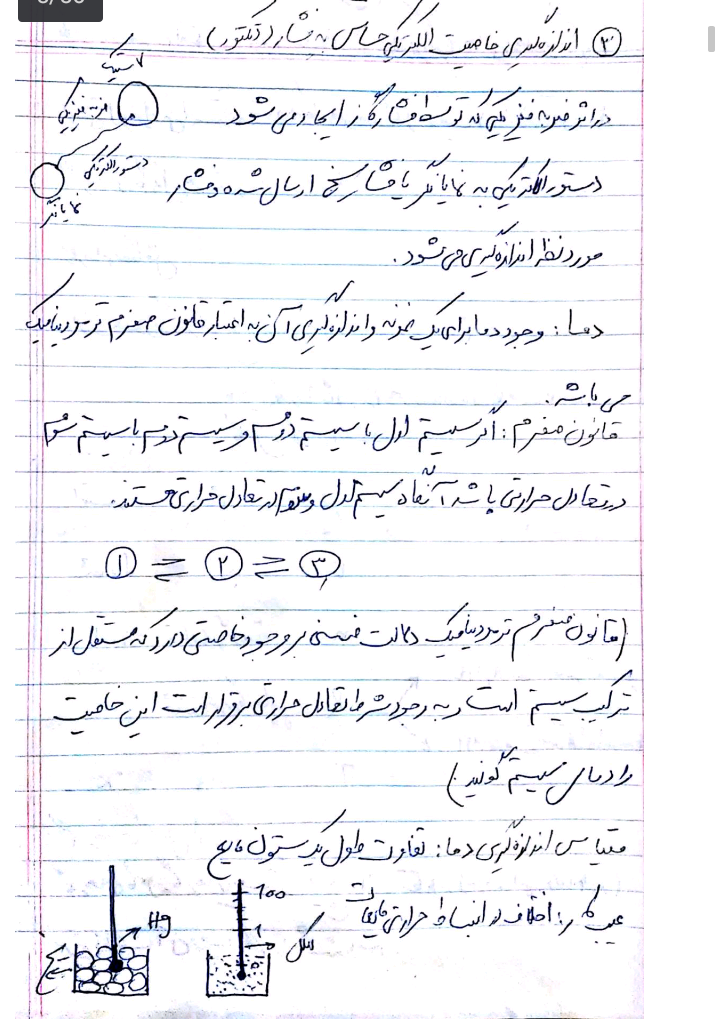 ③ اندازه‌گیری خاصیت الکتریکی حساس به فشار (دتکتور)
لاستیک
ضربه فیزیکی
در اثر ضربه فیزیکی که توسط فشار گاز ایجاد می شود
دستور الکتریکی
نمایانگر
دستور الکتریکی به نمایانگر یا فشارسنج ارسال شده و فشار
مورد نظر اندازه‌گیری می شود.
دما: وجود دما برای یک نمونه و اندازه‌گیری آن به اعتبار قانون صفرم ترمودینامیک
می باشد.
قانون صفرم: اگر سیستم اول با سیستم دوم و سیستم دوم با سیستم سوم
در تعادل حرارتی باشد آنگاه سیستم اول و سوم در تعادل حرارتی هستند.
① ⇌ ② ⇌ ③
(قانون صفرم ترمودینامیک دلالت ضمنی بر وجود خاصیتی دارد که مستقل از
ترکیب سیستم است و به وجود شرط تعادل حرارتی برقرار است این خاصیت
را دمای سیستم گویند)
مقیاس اندازه‌گیری دما: تفاوت طول یک ستون مایع
عیب کار: اختلاف در انبساط حرارتی مایعات
100
1
0
الکل
Hg
یخ